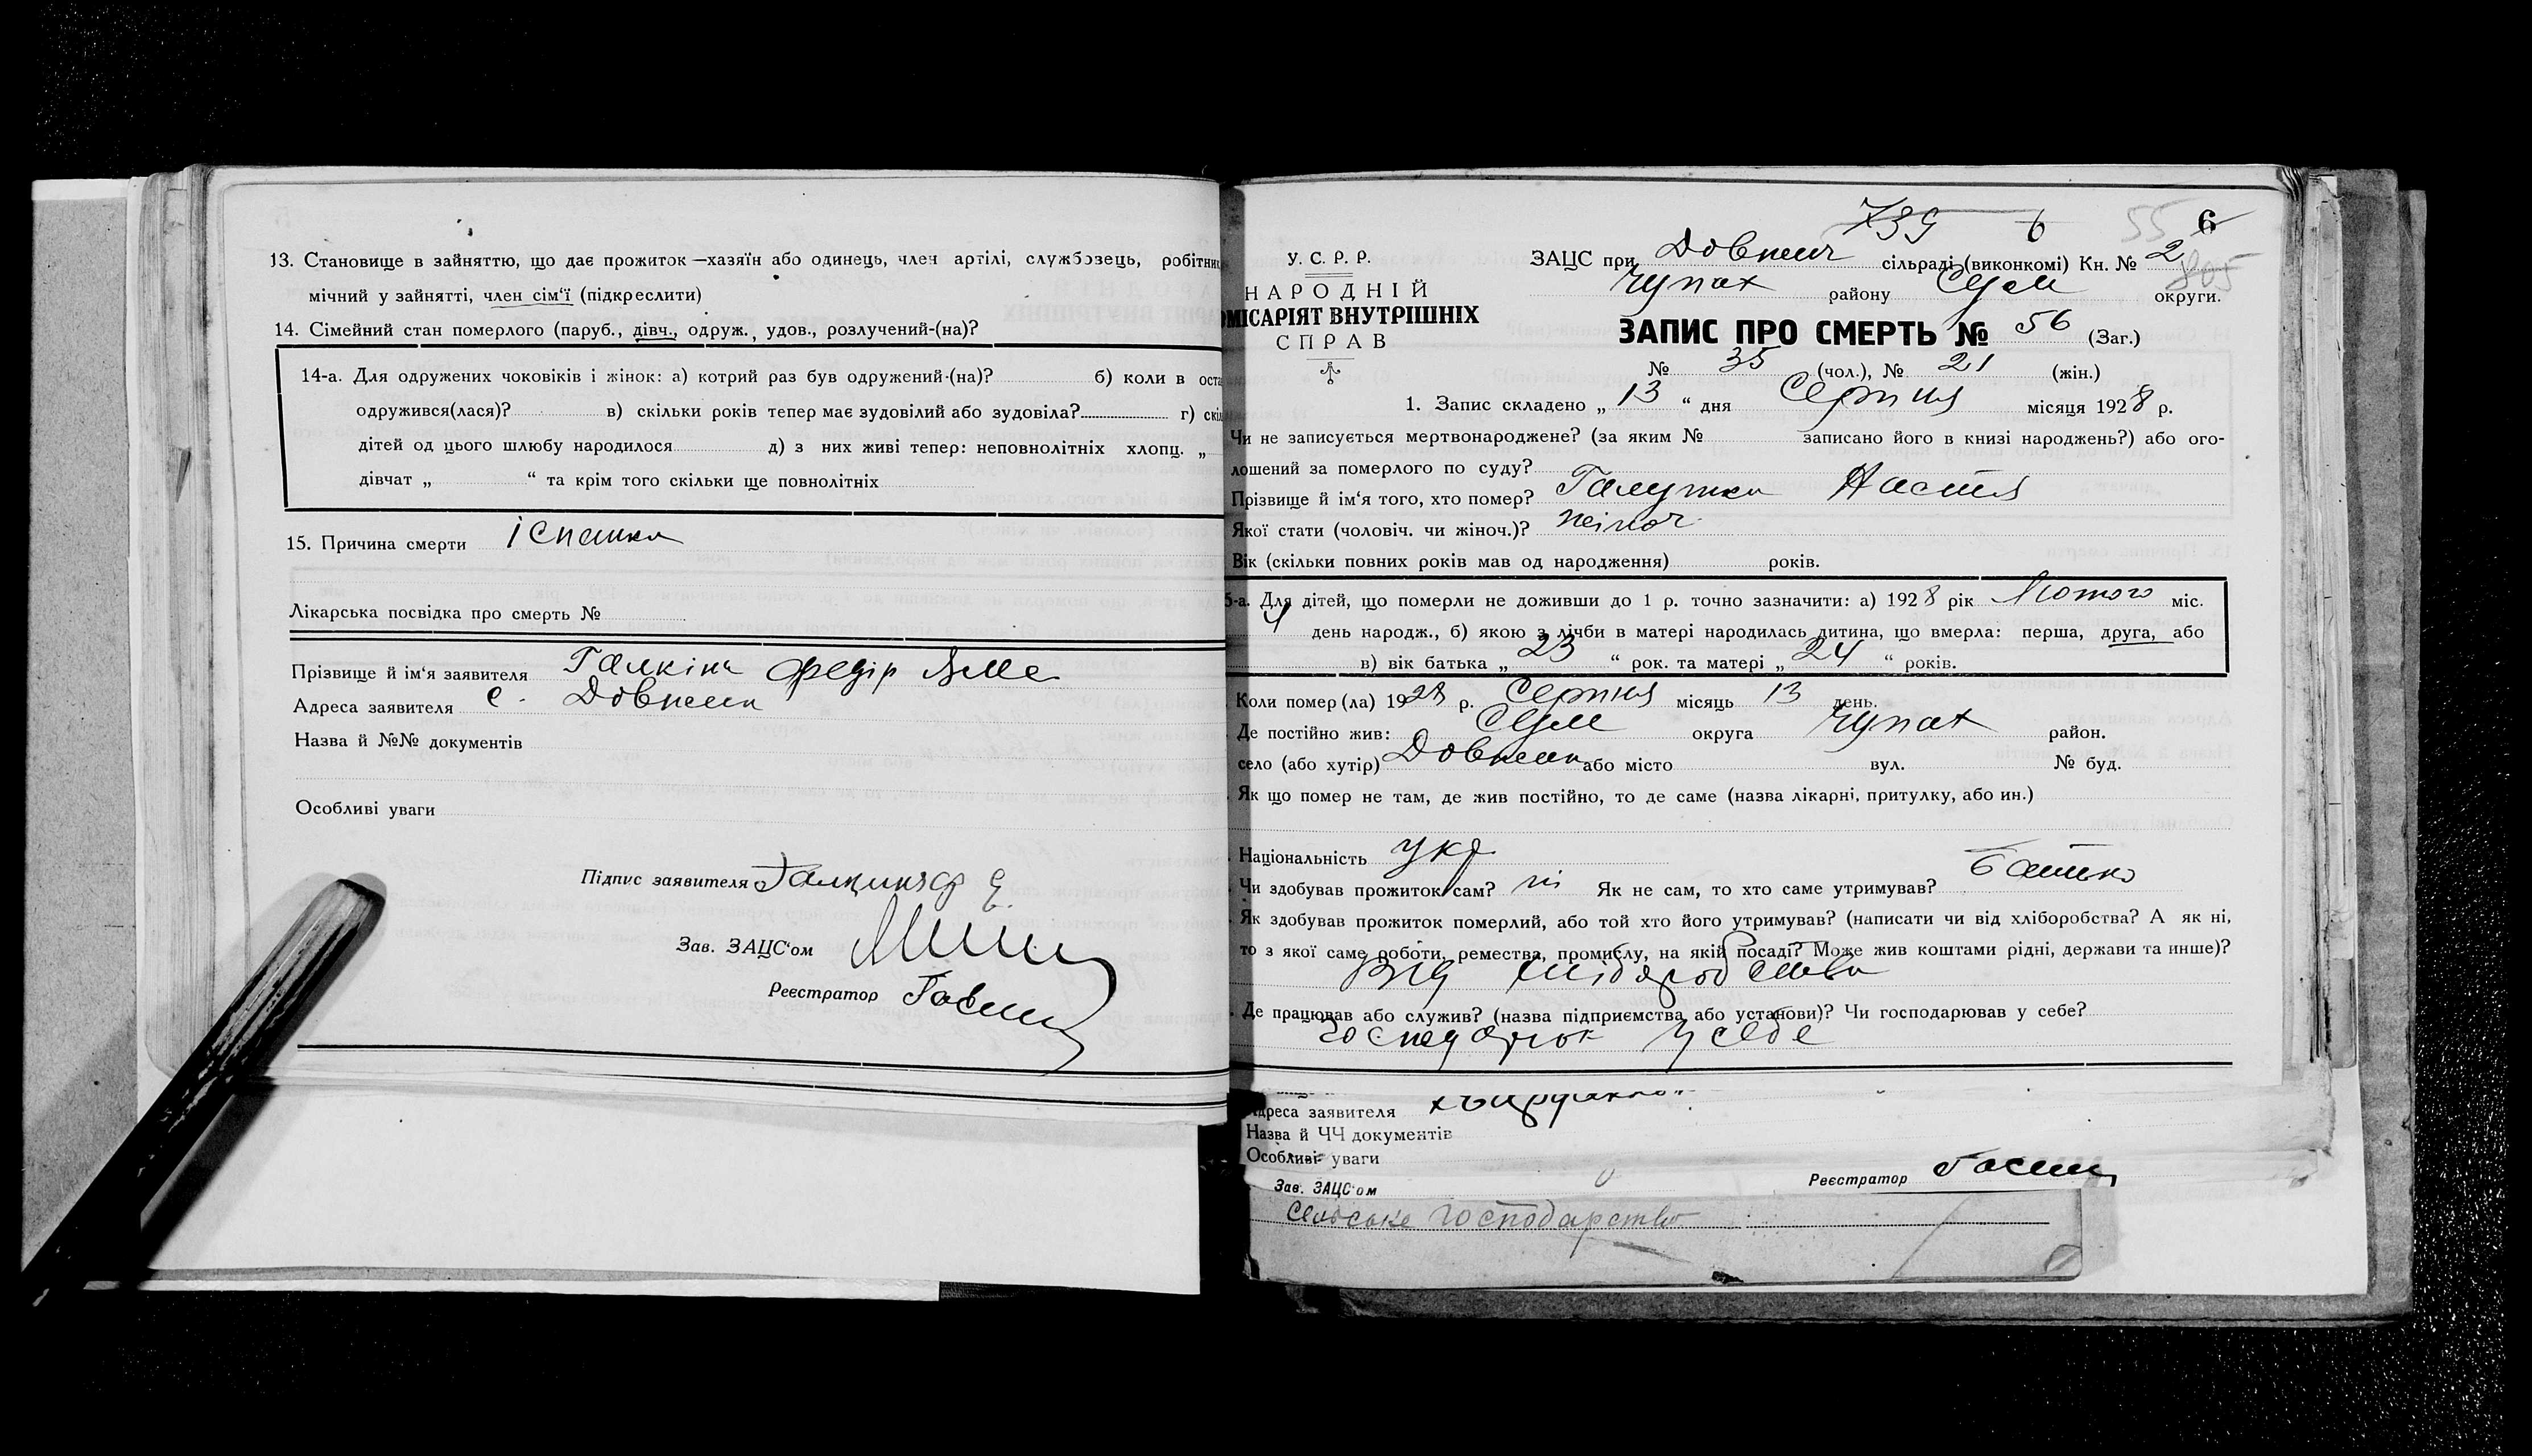 13. Становище в зайняттю, що дає прожиток —хазяїн або одинець, член артілі, службовець, робітниц
мічний у зайнятті, член сім'ї (підкреслити)
14. Сімейний стан померлого (паруб., дівч., одруж., удов., розлучений-(на)?
14-а. Для одружених чоковіків і жінок: а) котрий раз був одружений-(на)? б) коли в оста
одружився(лася)? в) скільки років тепер має зудовілий або зудовіла? г) скіл
дітей од цього шлюбу народилося д) з них живі тепер: неповнолітніх хлопц. „
дівчат „ “ та крім того скільки ще повнолітніх
15. Причина смерти
Лікарська посвідка про смерть №
Прізвище й ім'я заявителя Галкін Федір
Адреса заявителя с.
Назва й №№ документів
Особливі уваги
Підпис заявителя
Зав. ЗАЦС'ом
Реєстратор
739 6 55 6
805
У. С. Р. Р.
НАРОДНІЙ
ОМІСАРІЯТ ВНУТРІШНІХ
СПРАВ
ЗАЦС при сільраді (виконкомі) Кн. № 2
Чупах району Сум округи.
ЗАПИС ПРО СМЕРТЬ № 56 (Заг.)
№ 35 (чол.), № 21 (жін.)
1. Запис складено „ 13 “ дня Серпня місяця 1928 р.
Чи не записується мертвонароджене? (за яким № записано його в книзі народжень?) або ого-
лошений за померлого по суду?
Прізвище й ім'я того, хто помер? Настя
Якої стати (чоловіч. чи жіноч.)? жіноч.
Вік (скільки повних років мав од народження) років.
5-а. Для дітей, що померли не доживши до 1 р. точно зазначити: а) 1928 рік Лютого міс.
4 день народж., б) якою з лічби в матері народилась дитина, що вмерла: перша, друга, або
в) вік батька „ 23 “ рок. та матері „ 24 “ років.
Коли помер (ла) 1928 р. Серпня місяць 13 день.
Де постійно жив: Сум округа Чупах район.
село (або хутір) або місто вул. № буд.
Як що помер не там, де жив постійно, то де саме (назва лікарні, притулку, або ин.)
Національність укр
Чи здобував прожиток сам? ні Як не сам, то хто саме утримував? Батько
Як здобував прожиток померлий, або той хто його утримував? (написати чи від хліборобства? А як ні,
то з якої саме роботи, ремества, промислу, на якій посаді? Може жив коштами рідні, держави та инше)?
Від хліборобства
Де працював або служив? (назва підприємства або установи)? Чи господарював у себе?
у себе
Адреса заявителя
Назва й ЧЧ документів
Особливі уваги
Зав. ЗАЦС'ом Реєстратор
Сельське господарство